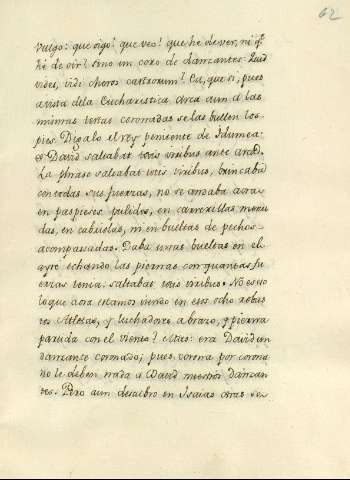 62
vulgo: que oigo? que veo? que hé de ver, ni q.e
hé de oir? sino un coro de danzantes. Quid
vides, vidi choros castrorum? Ea, que si, pues
a vista de la Eucharistica Arca aun a las
mismas testas coronadas se las bullen los
pies. Digalo el rey penitente de Idumea:
et David saltabat totis viribus ante arcã.
La phrase saltabat totis viribus, brincaba
con todas sus fuerzas, no se andaba aora
en paspiees pulidos, ni en carrerillas menu
das, en cabriolas, ni en bueltas de pechos
acompasadas. Daba unas bueltas en el
ayre echando las piernas con quantas fu
erzas tenia. saltabat totis viribus. No es eso
lo que aora estamos viendo en esos ocho robus
tos Atletas, y luchadores a brazo, y pierna
partida con el viento? Mas: era David un
danzante coronado; pues corona por corona
no le deben nada a David nuestros Danzan
tes. Pero aun descubro en Isaias otras se